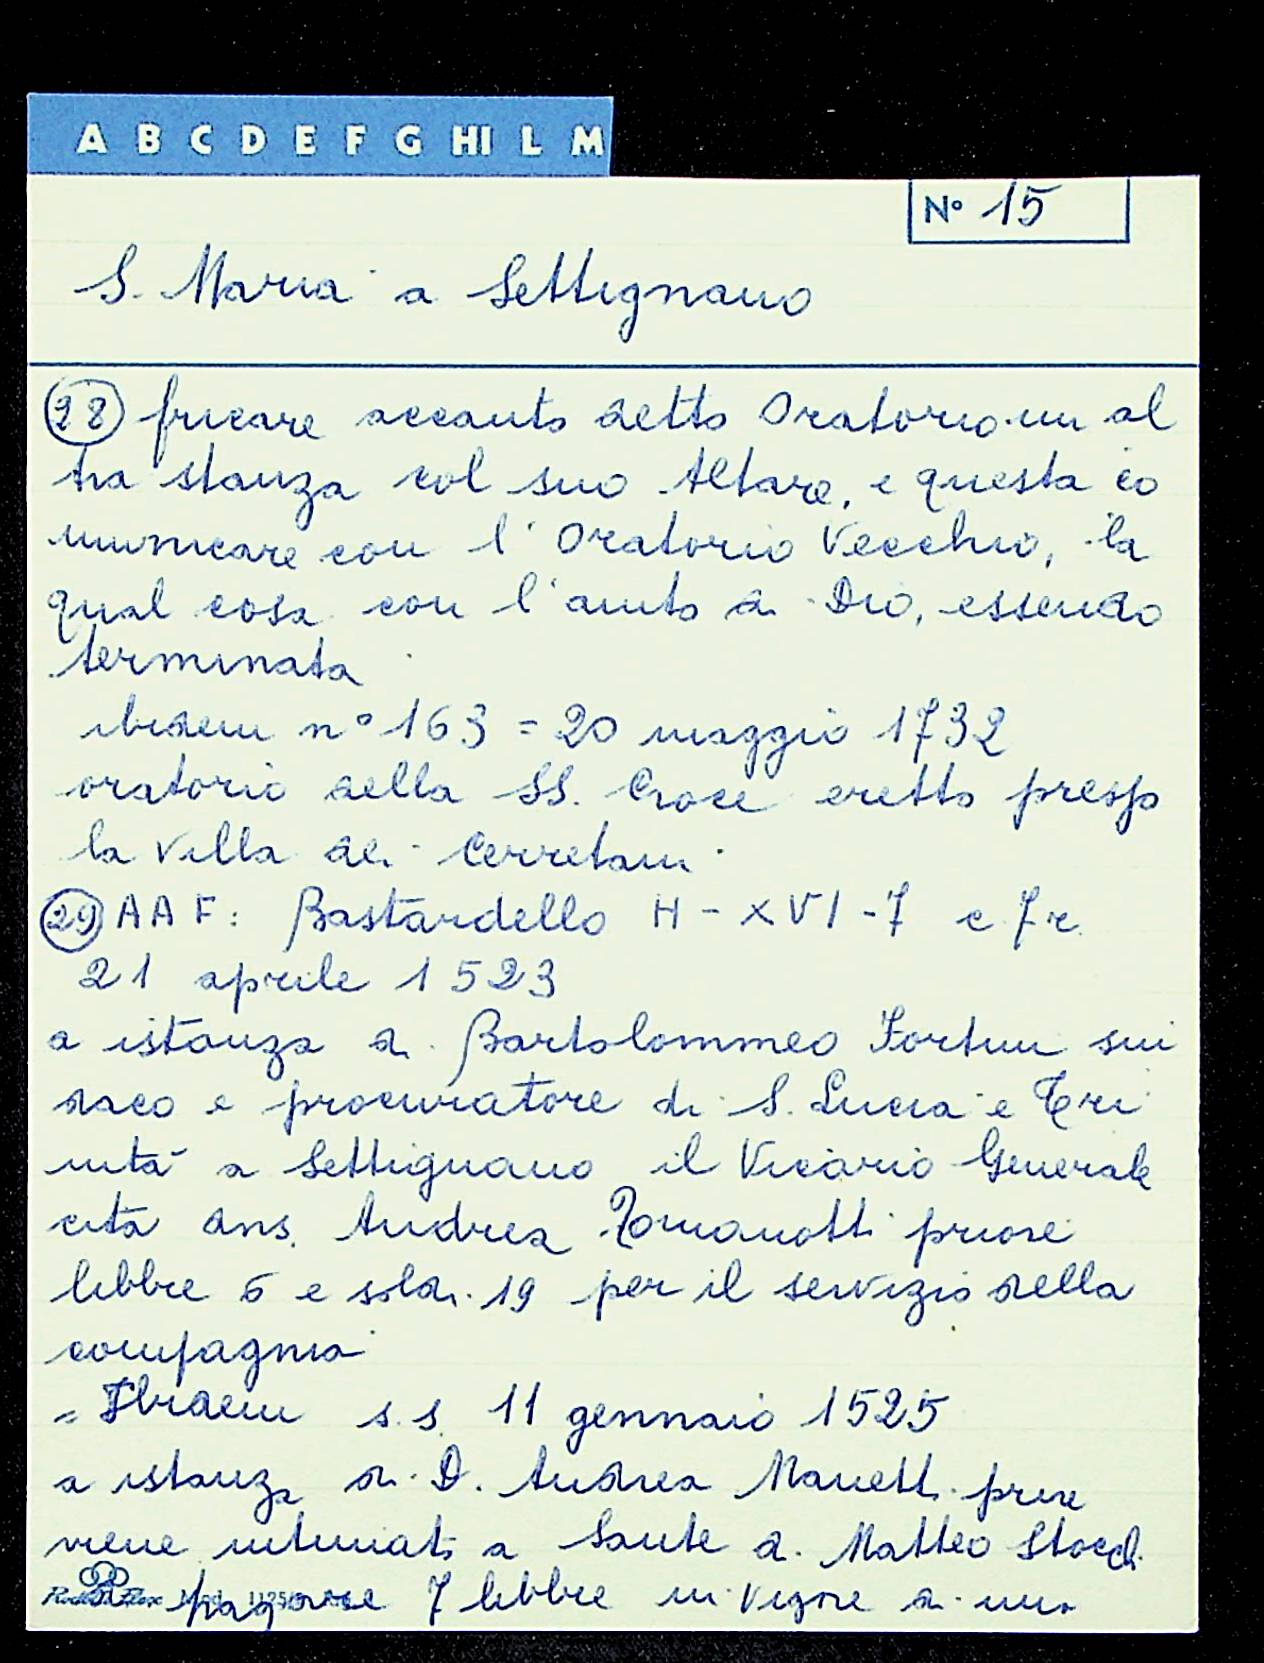 A B C D E F G HI L M
Nº 15
S. Maria a Settignano
28 fricare accanto detto Oratorio un al
tra stanza col suo Altare, e questa co
municare con l'Oratorio Vecchio, la
qual cosa con l'aiuto di Dio, essendo
terminata
ibidem nº 163 = 20 maggio 1732
oratorio della SS. Croce eretto presso
la villa dei Cerretani
29 AAF: Bastardello H - XVI - 7 c 7r.
21 aprile 1523
a istanza di Bartolommeo Fortini sin
daco e procuratore di S. Lucia e Tri
nità a Settignano il Vicario Generale
cita Andrea Romanotti priore
libbre 6 e soldi 19 per il servizio della
compagnia
= Ibidem s.s. 11 gennaio 1525
a istanza di D. Andrea Manetti priore
viene intimato a Sante di Matteo Stocchi
di pagare 7 libbre in vigore di una